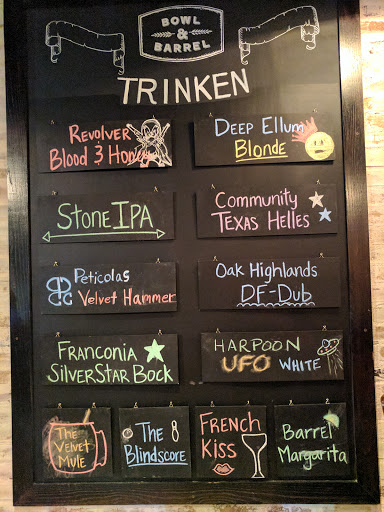 BOWL
&
BARREL
TRINKEN
REVOLVER
BLOOD & HONEY
DEEP ELLUM
BLONDE
STONE IPA
COMMUNITY
TEXAS HELLES
PETICOLAS
VELVET HAMMER
OAK HIGHLANDS
DF-DUB
FRANCONIA
SILVERSTAR BOCK
HARPOON
UFO WHITE
THE
VELVET
MULE
THE
BLINDSCORE
FRENCH
KISS
BARREL
MARGARITA